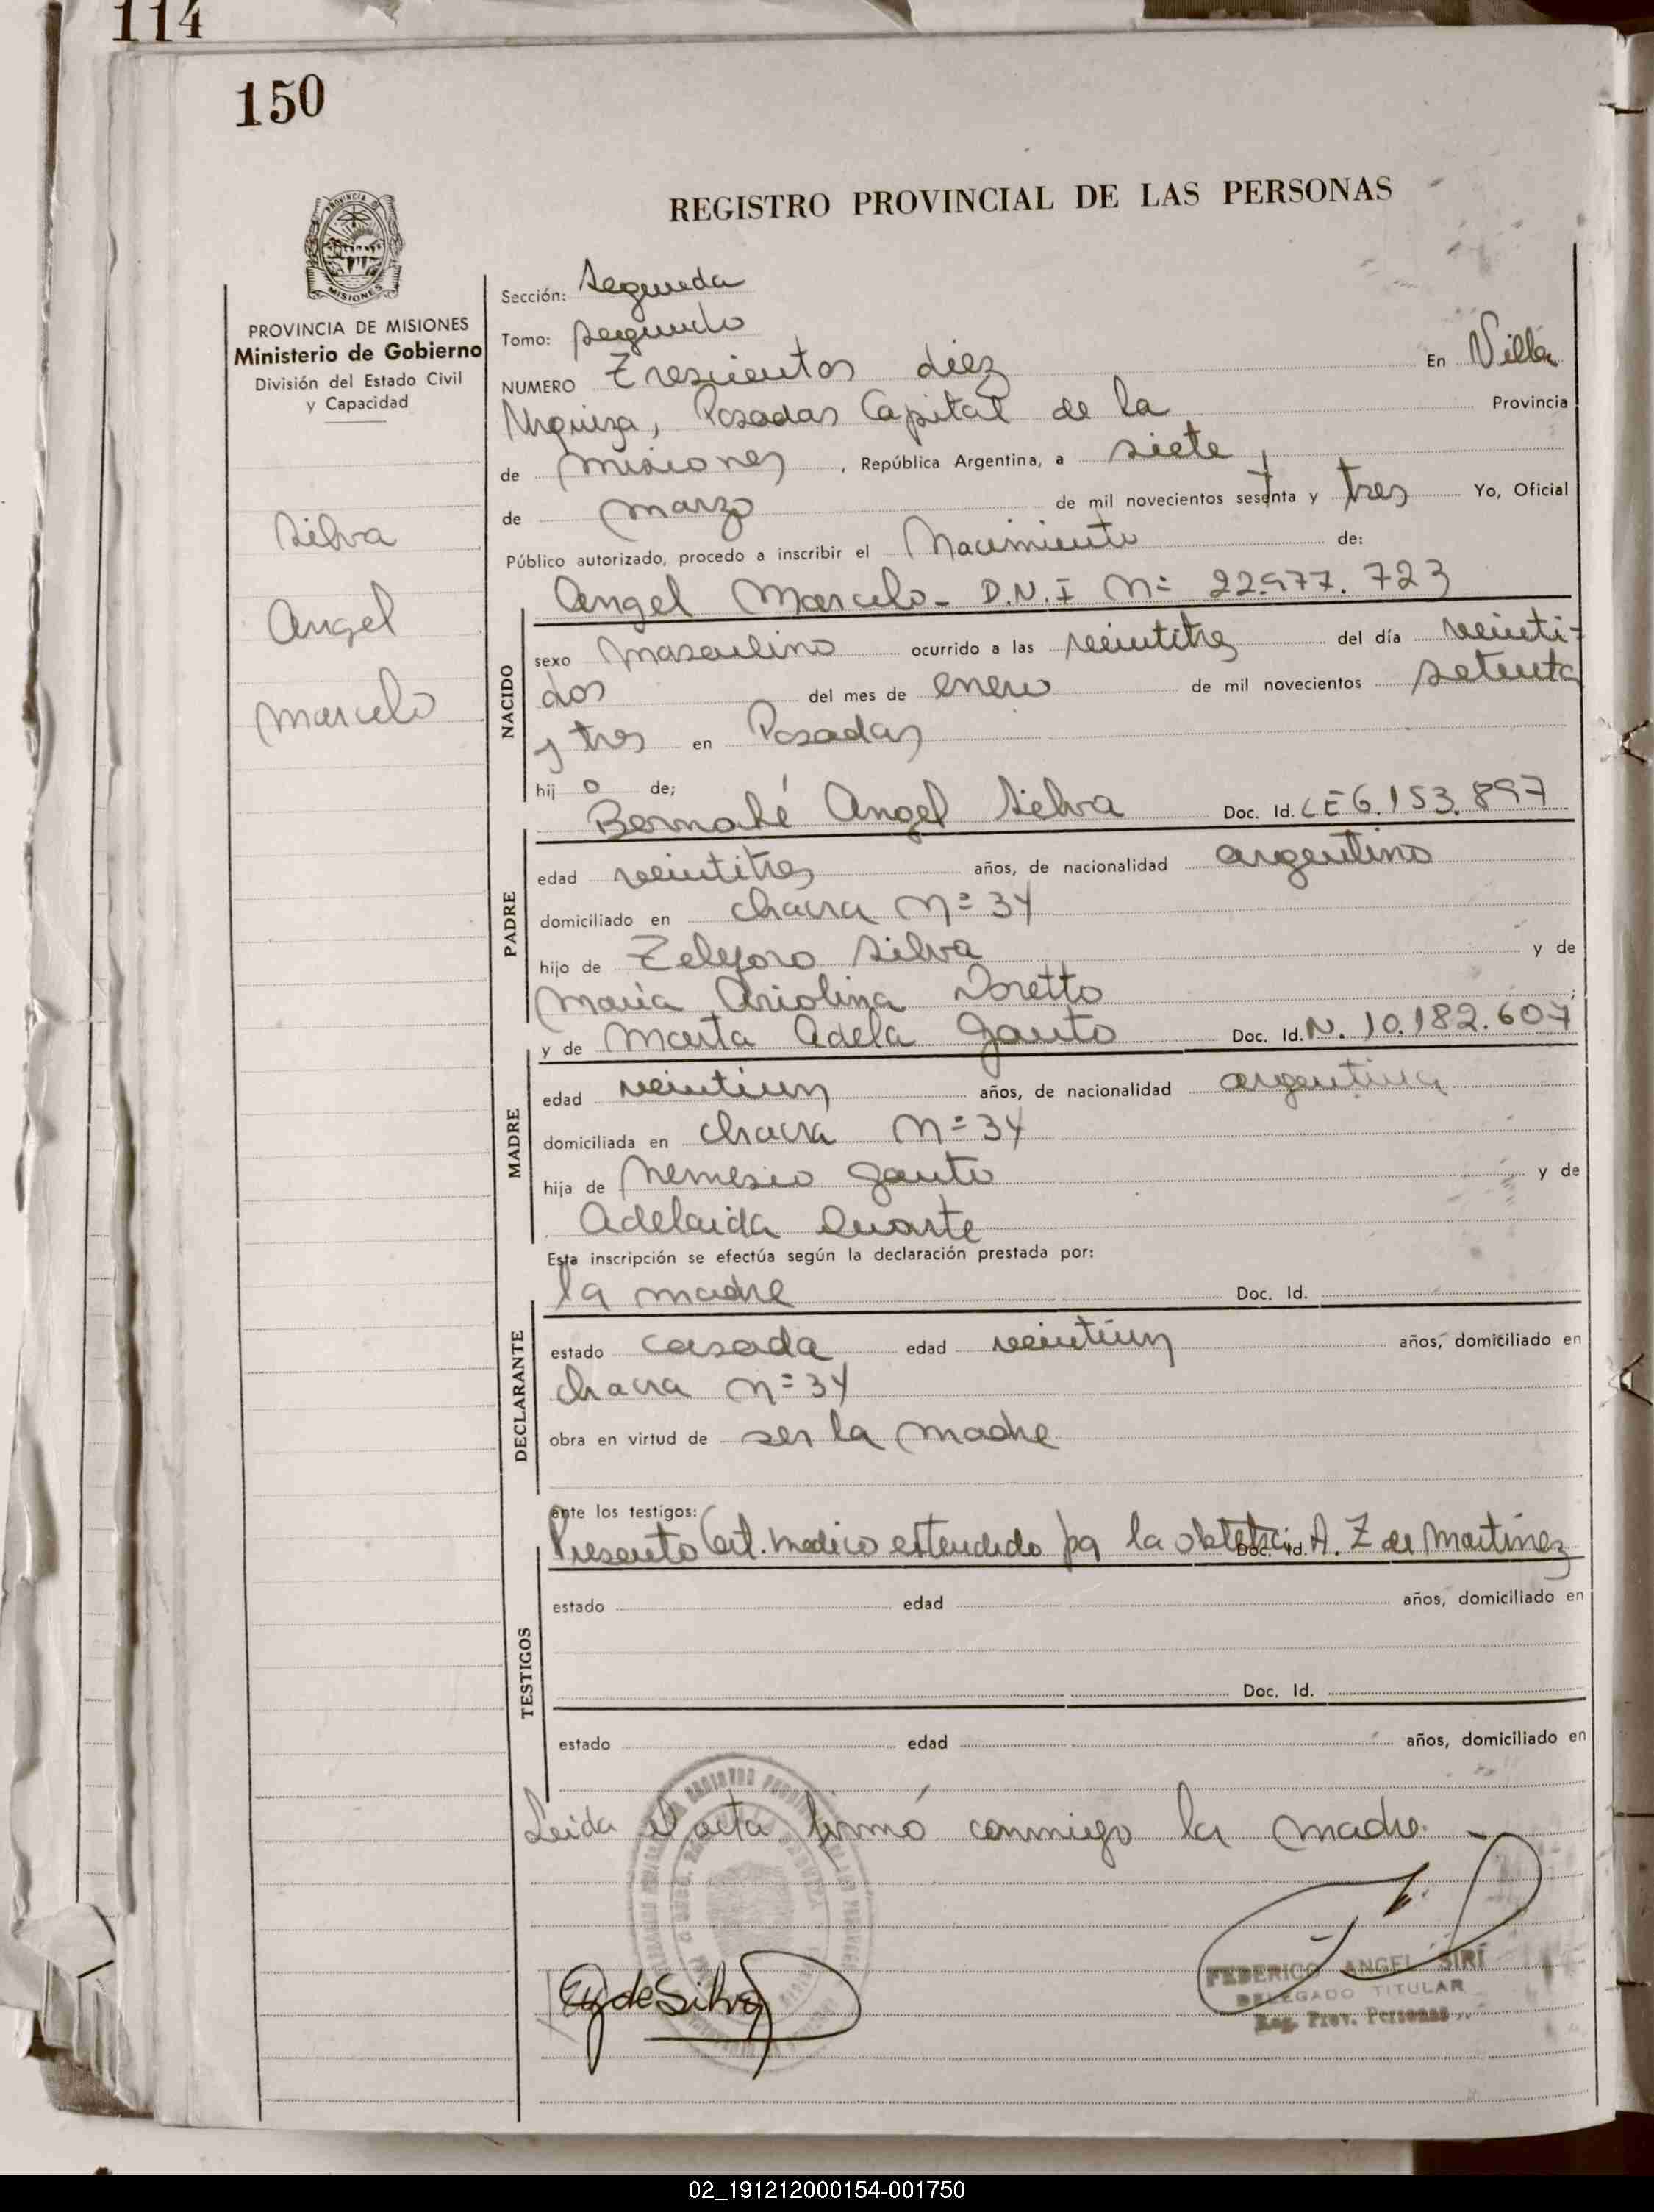 114
150
REGISTRO PROVINCIAL DE LAS PERSONAS
PROVINCIA DE MISIONES
MISIONES
PROVINCIA DE MISIONES
Ministerio de Gobierno
División del Estado Civil
y Capacidad
Silva
Angel
Marcelo
Sección: Segunda
Tomo: Segundo
NUMERO Trescientos diez En Villa
Urquiza, Posadas Capital de la Provincia
de Misiones, República Argentina, a siete
de marzo de mil novecientos sesenta y tres Yo, Oficial
Público autorizado, procedo a inscribir el Nacimiento de:
Angel Marcelo - D.N.I Nº 22.977.723
NACIDO
sexo Masculino ocurrido a las veintitres del día veinti-
dos del mes de enero de mil novecientos setenta
y tres en Posadas
hij o de;
Bernabé Angel Silva Doc. Id. LE 6.153.897
PADRE
edad veintitres años, de nacionalidad argentino
domiciliado en chacra Nº 34
hijo de Telesforo Silva y de
María Ariolina Doretto
y de Marta Adela Gauto Doc. Id. N. 10.182.607
MADRE
edad veintiun años, de nacionalidad argentina
domiciliada en chacra Nº 34
hija de Nemesio Gauto y de
Adelaida Duarte
Esta inscripción se efectúa según la declaración prestada por:
la madre Doc. Id.
DECLARANTE
estado casada edad veintiún años, domiciliado en
chacra nº 34
obra en virtud de ser la madre
ante los testigos:
Presento Cert. medico estendido por la obstetric. Doc. Id. A. Z de Martínez
TESTIGOS
estado edad años, domiciliado en
Doc. Id.
estado edad años, domiciliado en
Leida el acta firmó conmigo la madre.
de Silva
FEDERICO ANGEL SIRI
DELEGADO TITULAR
Reg. Prov. Personas
02_191212000154-001750